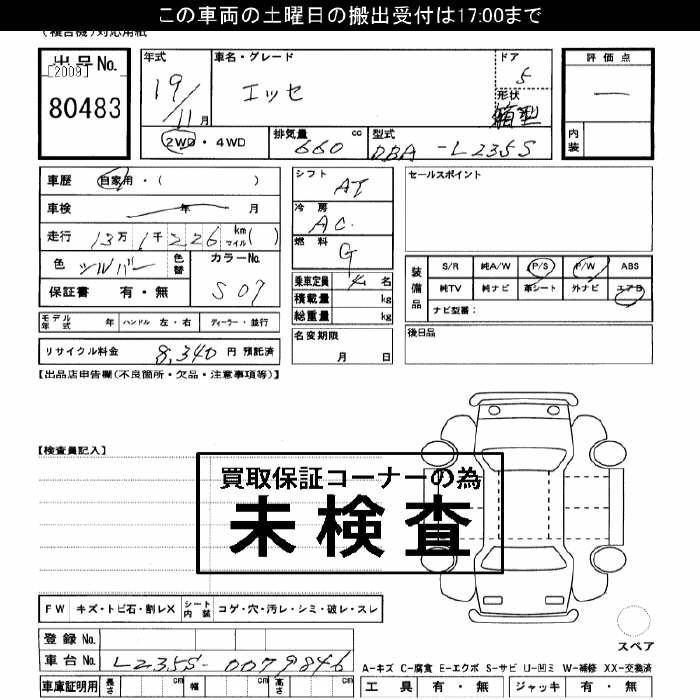 この車両の土曜日の搬出受付は17:00まで
(複合機)対応用紙
出品No.
[2009]
80483
年式 19/11月
車名・グレード エッセ
ドア 5
形状 箱型
2WD・4WD
排気量 660 cc
型式 DBA-L235S
評価点
―
内装
車歴 自家用・( )
車検 年 月
走行 13万1千226 km マイル( )
色 シルバー 色替
カラーNo. S07
保証書 有・無
シフト AT
冷房 AC.
燃料 G
乗車定員 4名
積載量 kg
総重量 kg
名変期限
月 日
セールスポイント
装備品
S/R 純A/W P/S P/W ABS
純TV 純ナビ 革シート 外ナビ エアB
ナビ型番:
後日品
モデル年式 年 ハンドル 左・右 ディーラー・並行
リサイクル料金 8,340 円 預託済
【出品店申告欄(不良箇所・欠品・注意事項等)】
【検査員記入】
買取保証コーナーの為
未検査
FW キズ・トビ石・割レX シート内装 コゲ・穴・汚レ・シミ・破レ・スレ
スペア
登録No.
車台No. L235S-0079846
A-キズ C-腐食 E-エクボ S-サビ U-凹ミ W-補修 XX-交換済
車庫証明用 長さ cm 幅 cm 高さ cm
工具 有・無 ジャッキ 有・無